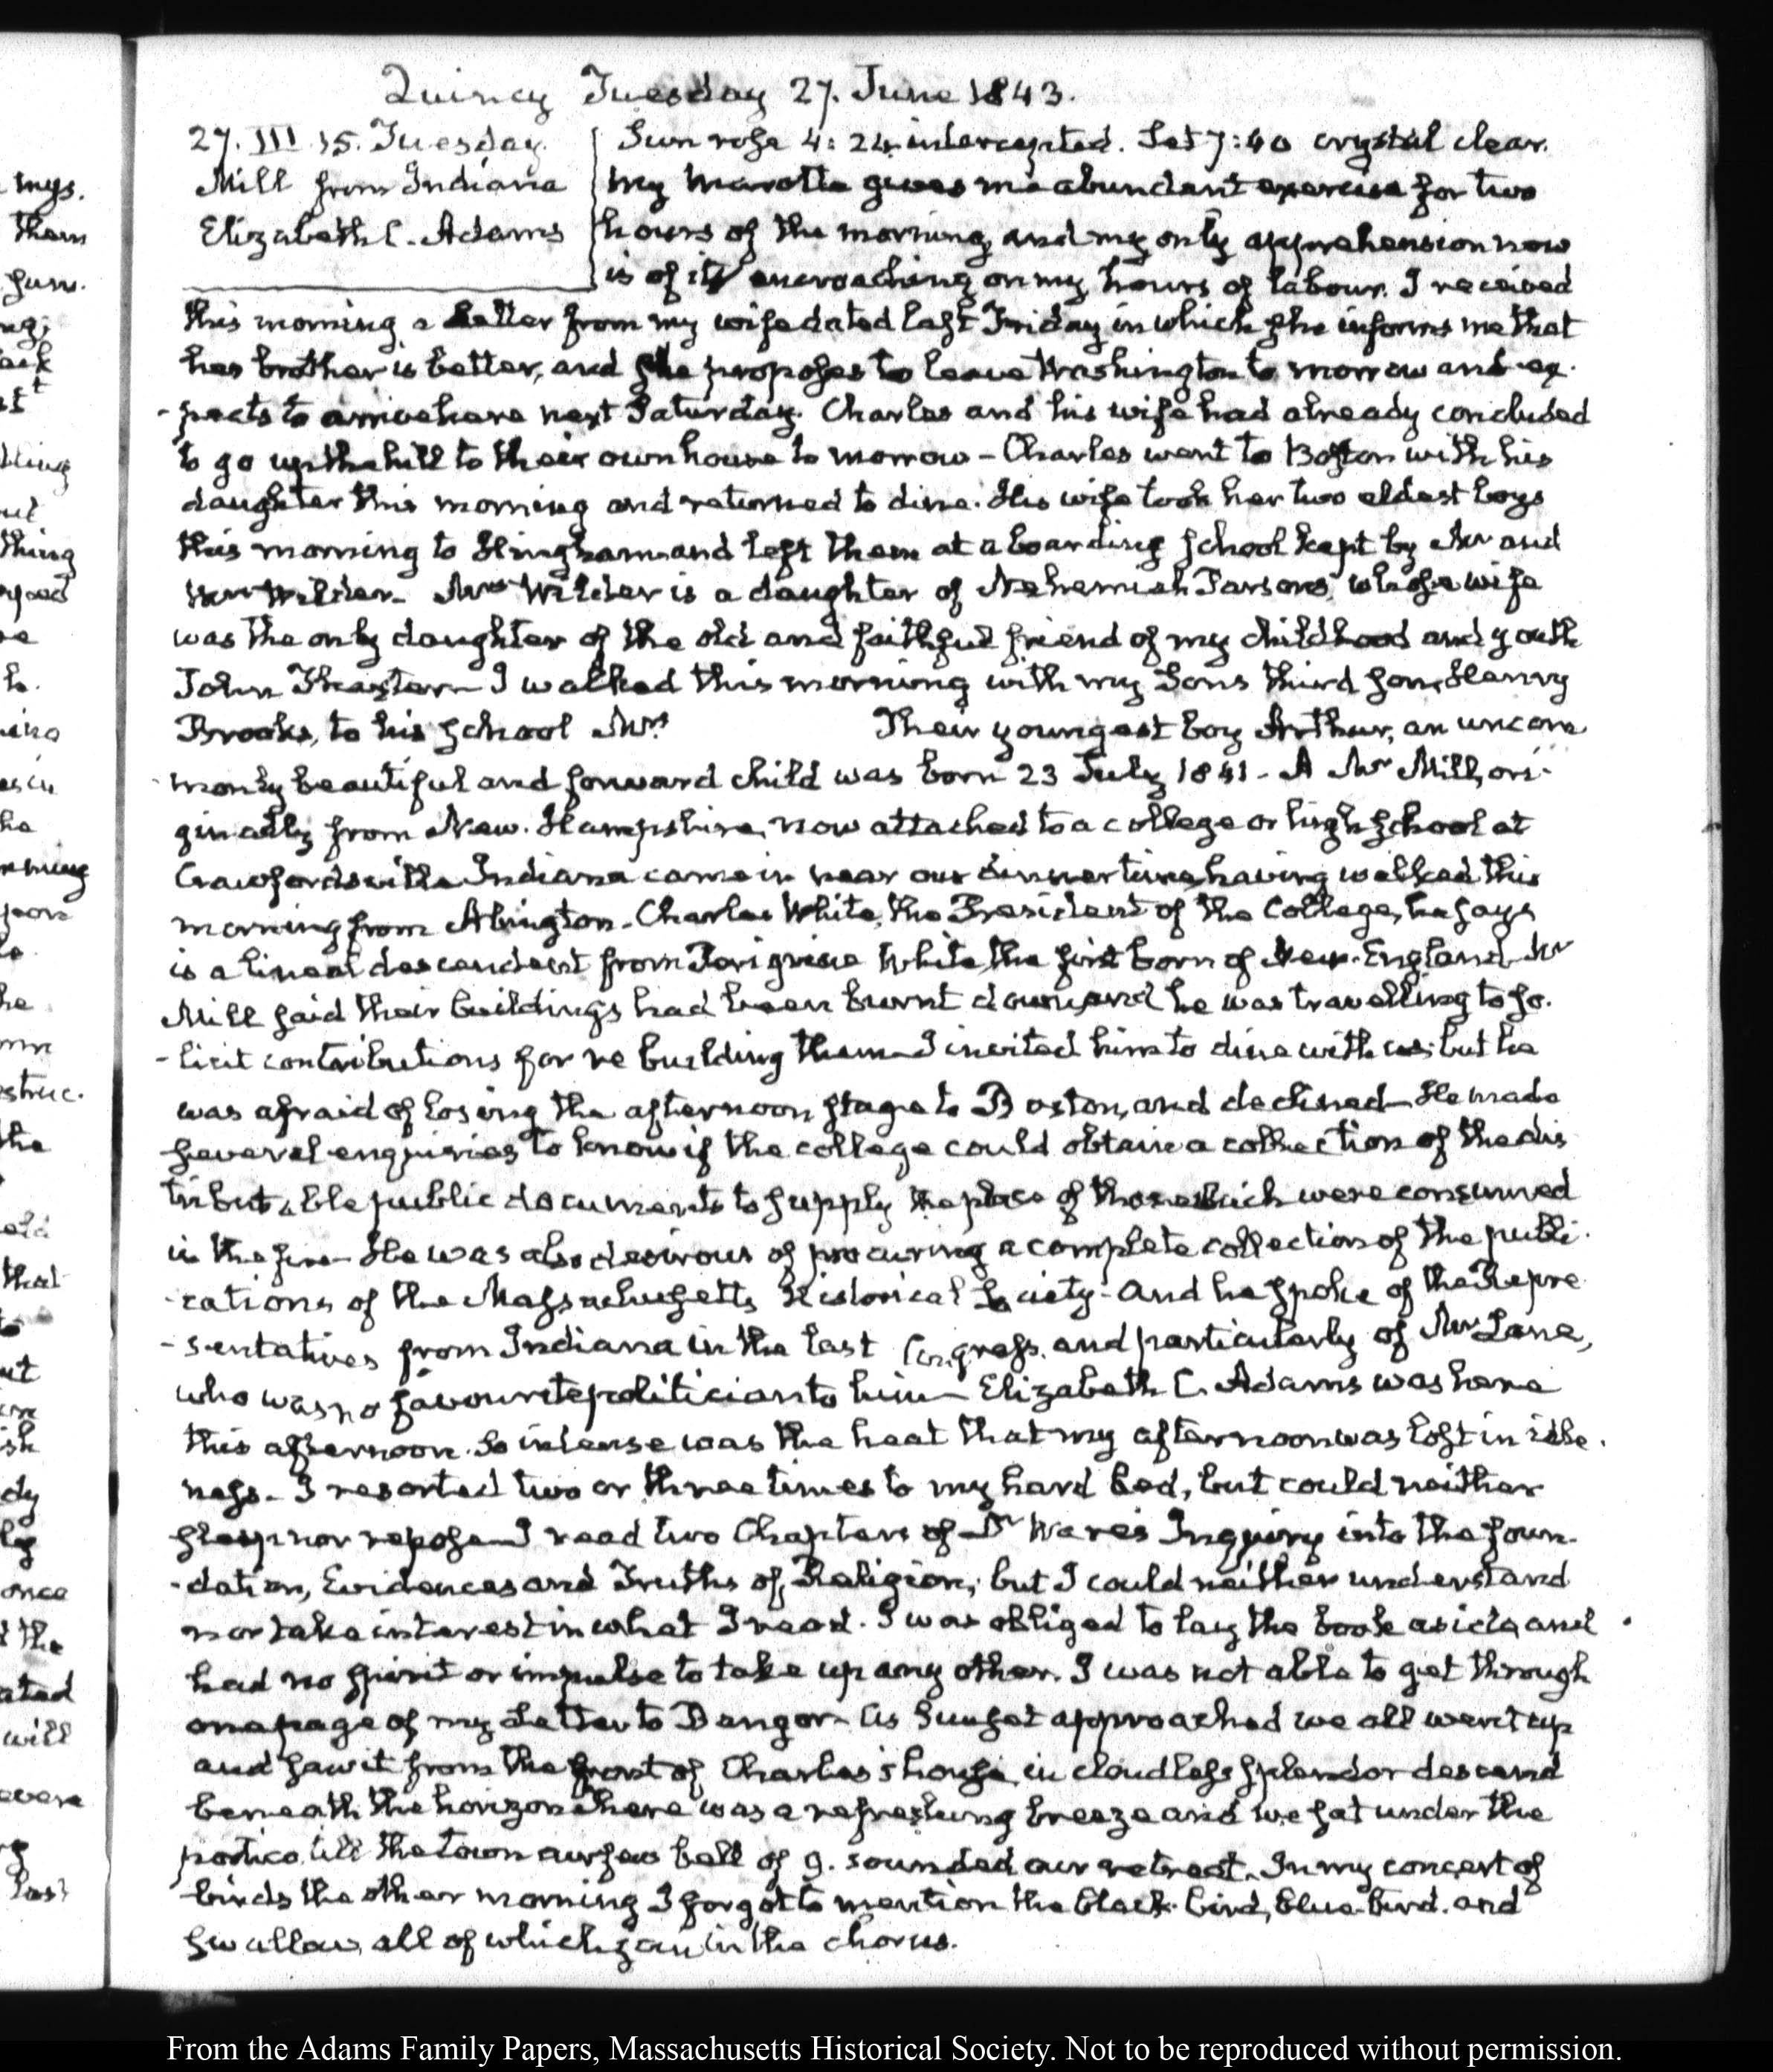 Quincy Tuesday 27. June 1843.
27. III. 15. Tuesday.
Mill from Indiana
Elizabeth C. Adams
Sun rose 4:24 intercepted. Set 7:40 crystal clear.
My Marotte gives me abundant exercise for two
hours of the morning, and my only apprehension now
is of its encroaching on my hours of labour. I received
this morning a Letter from my wife dated last Friday in which she informs me that
her brother is better, and she proposes to leave Washington to morrow and ex-
-pects to arrive here next Saturday. Charles and his wife had already concluded
to go up the hill to their own house to morrow - Charles went to Boston with his
daughter this morning and returned to dine. His wife took her two eldest boys
this morning to Hingham and left them at a boarding school kept by Mr and
Mrs Wilder. Mrs Wilder is a daughter of Nehemiah Parsons, whose wife
was the only daughter of the old and faithful friend of my childhood and youth
John Thaxter - I walked this morning with my Sons third son, Henry
Brooks, to his school Mrs. Their youngest boy Arthur, an uncom
-monly beautiful and forward child was born 23 July 1841 - A Mr Mill, ori-
ginally from New-Hampshire, now attached to a college or high school at
Crawfordsville Indiana came in near our dinner time, having walked this
morning from Abington - Charles White, the President of the College, he says
is a lineal descendent from Perigrine White, the first born of New-England. Mr
Mill said their buildings had been burnt down, and he was travelling to so-
-licit contributions for rebuilding them - I invited him to dine with us; but he
was afraid of losing the afternoon stage to Boston, and declined - He made
several enquiries to know if the college could obtain a collection of the dis
tributable public documents to supply the place of those which were consumed
in the fire - He was also desirous of procuring a complete collection of the publi-
-cations of the Massachusetts Historical Society - And he spoke of the Repre
-sentatives from Indiana in the last Congress, and particularly of Mr Lane,
who was no favourite politician to him - Elizabeth C. Adams was here
this afternoon. So intense was the heat that my afternoon was lost in idle-
ness - I resorted two or three times to my hard bed, but could neither
sleep nor repose - I read two Chapters of Dr Ware's Inquiry into the foun-
-dation, Evidences and Truths of Religion; but I could neither understand
nor take interest in what I read. I was obliged to lay the book aside, and
had no spirit or impulse to take up any other. I was not able to get through
one page of my Letter to Bangor - As Sunset approached we all went up
and saw it from the front of Charles's house, in cloudless splendor descend
beneath the horizon. There was a refreshing breeze and we sat under the
portico, till the town curfew bell of 9. sounded our retreat. In my concert of
birds the other morning I forgot to mention the black-bird, blue-bird. and
swallow, all of which join in the chorus.
From the Adams Family Papers, Massachusetts Historical Society. Not to be reproduced without permission.